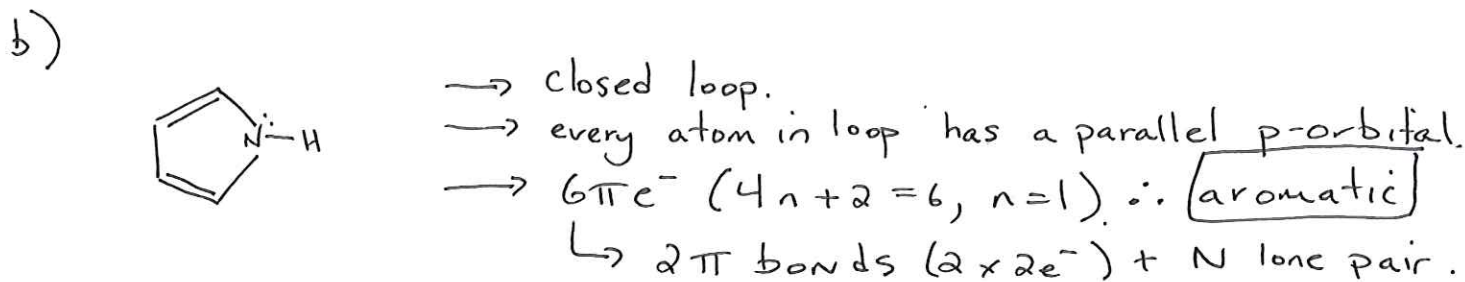 b)
→ closed loop.
→ every atom in loop has a parallel p-orbital.
N̈—H
→ 6πe⁻ (4n+2=6, n=1) ∴ aromatic
↳ 2π bonds (2×2e⁻) + N lone pair.